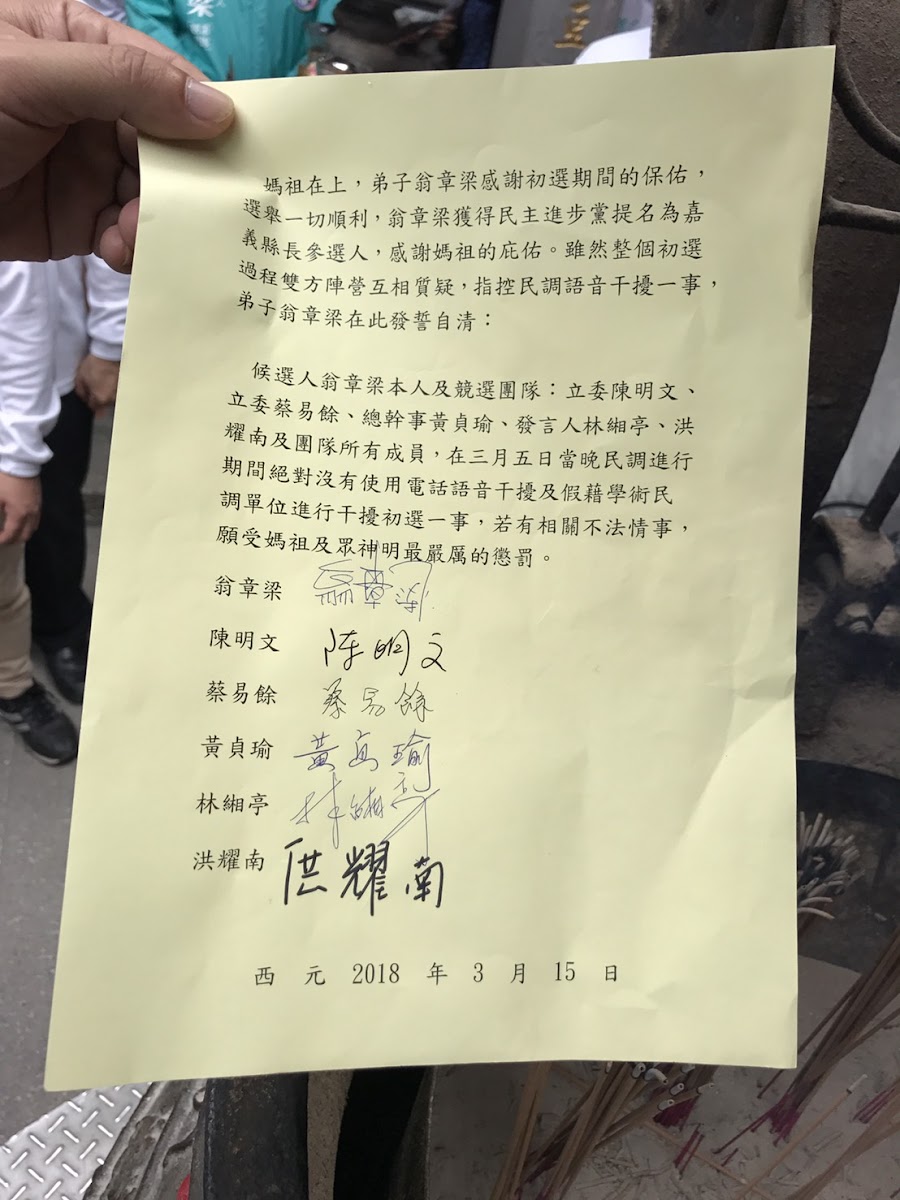 媽祖在上，弟子翁章梁感謝初選期間的保佑，
選舉一切順利，翁章梁獲得民主進步黨提名為嘉
義縣長參選人，感謝媽祖的庇佑。雖然整個初選
過程雙方陣營互相質疑，指控民調語音干擾一事，
弟子翁章梁在此發誓自清：
候選人翁章梁本人及競選團隊：立委陳明文、
立委蔡易餘、總幹事黃貞瑜、發言人林緗亭、洪
耀南及團隊所有成員，在三月五日當晚民調進行
期間絕對沒有使用電話語音干擾及假藉學術民
調單位進行干擾初選一事，若有相關不法情事，
願受媽祖及眾神明最嚴厲的懲罰。
翁章梁 翁章梁
陳明文 陈明文
蔡易餘 蔡易餘
黃貞瑜 黃貞瑜
林緗亭 林緗亭
洪耀南 洪耀南
西元 2018 年 3 月 15 日